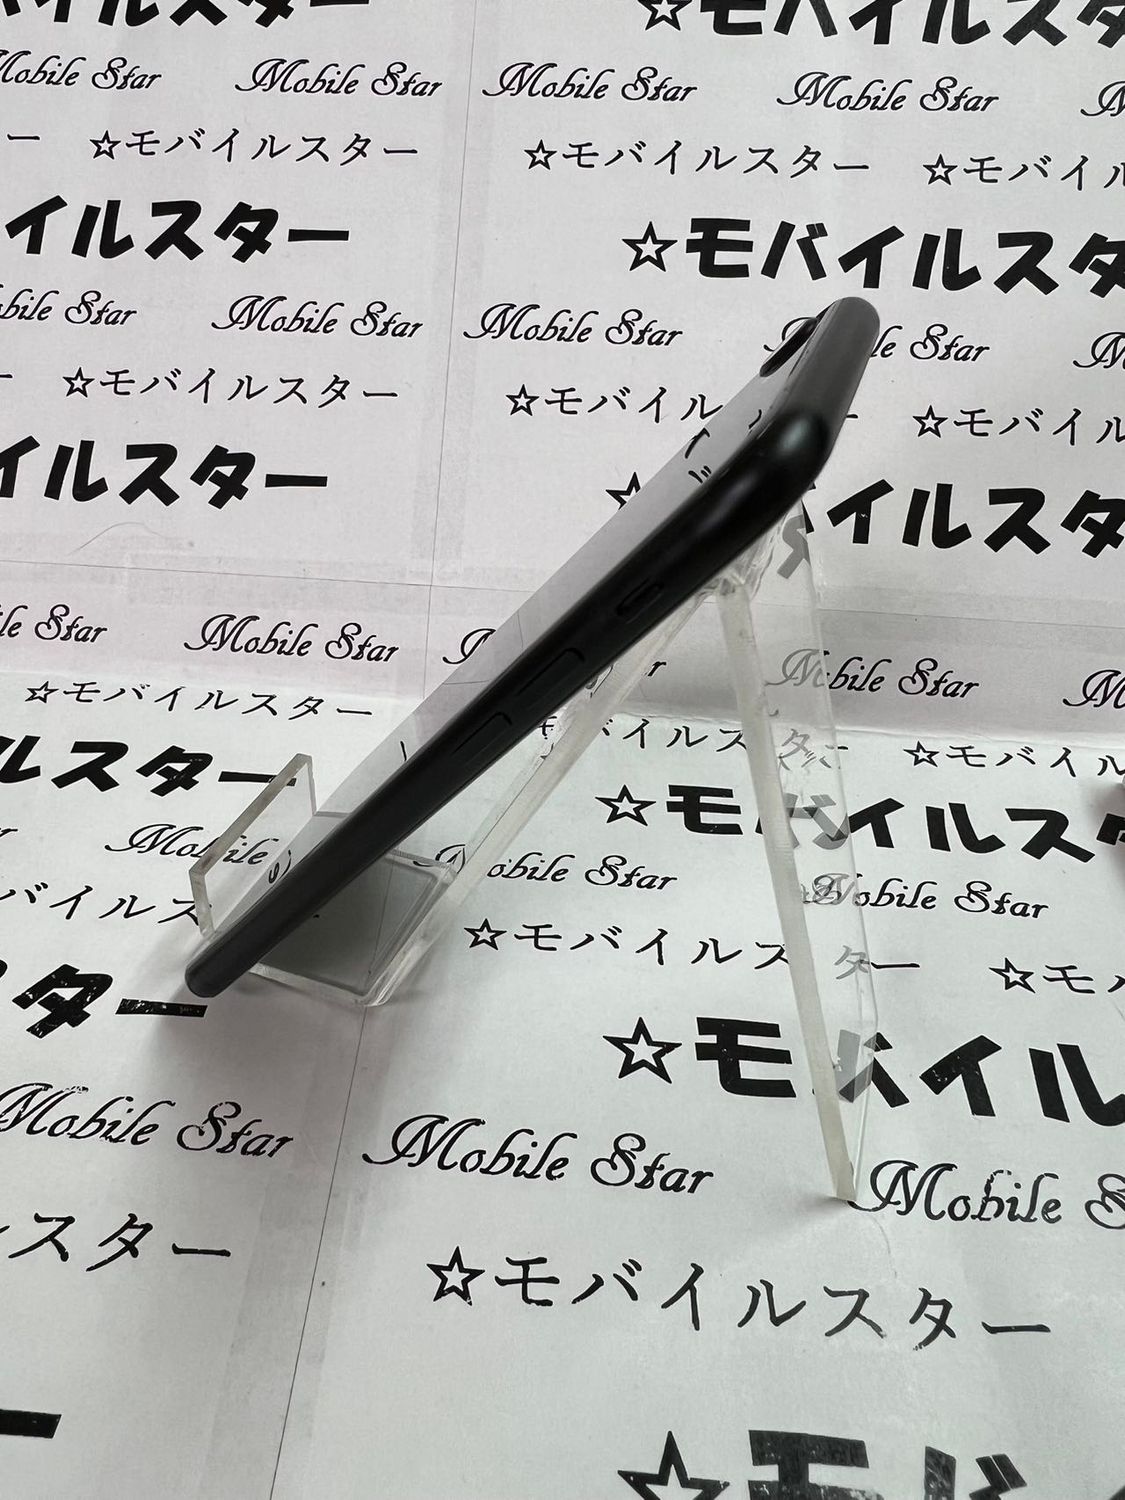 ☆モバイルスタ
Mobile Star Mobile Star Mobile Star Mobile Star
☆モバイルスター ☆モバイルスター ☆モバイル
イルスター ☆モバイルスタ
Mobile Star Mobile Star Star
☆モバイルスター ☆モバイル ☆モバイル
イルスター イルスタ
Star Mobile Star Mobile Star
☆モバイルスター
ルスター イルスター ☆モバイ
☆モバイルスタ
Mobile Star Mobile Star
バイルス ☆モバイルスター ☆モバ
スター ☆モバイル
Mobile Star Mobile Star Mobile
ルスター ☆モバイルスター
☆モバ